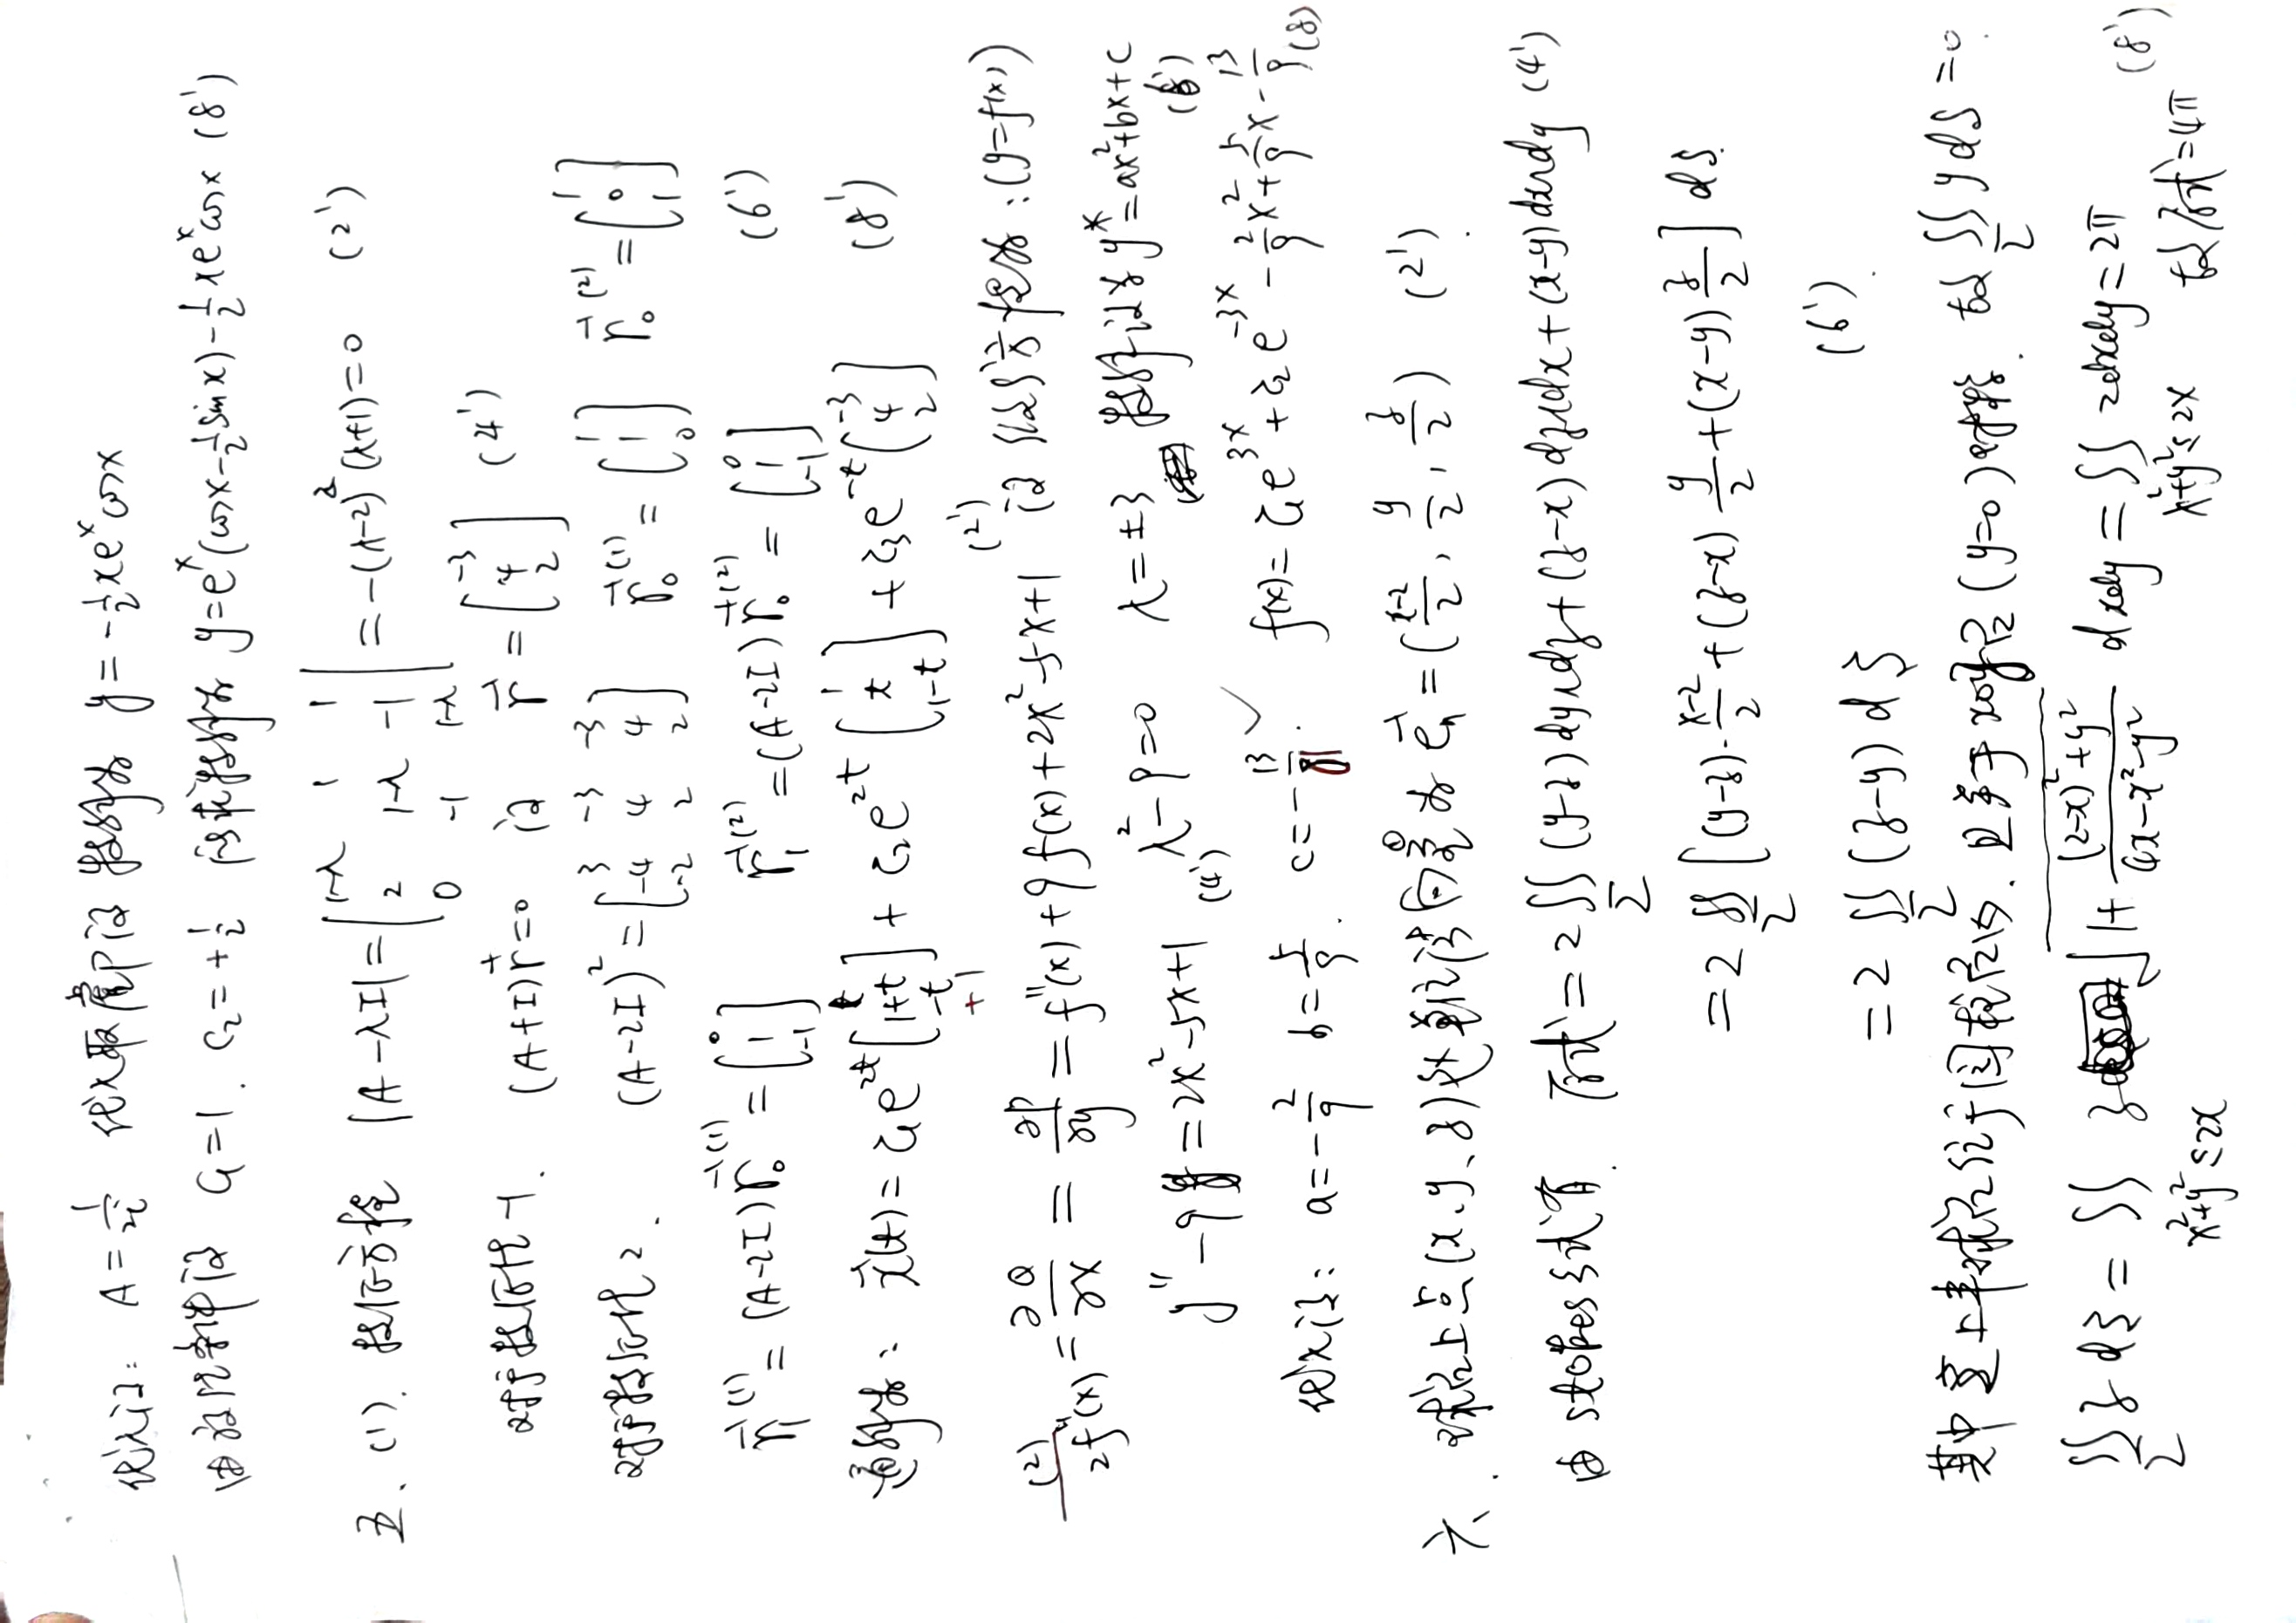 代入得: A = 1/2i 代入取实部得特解为 y = -1/2 xeˣcosx
由初值条件得 c₁=1. c₂=+1/2 得求特解为 y=eˣ(cosx-1/2 sinx)-1/2 xeˣcosx (8')
五. (1). 特征方程 |A-λI| = | 1-λ 1 1 ; 2 1-λ -1 ; 0 -1 1-λ | = -(λ-2)²(λ+1)=0 (2')
对于特征根-1. (A+I)r⃗=0 得 r⃗ = [-3 4 2] (4')
对于特征根2. (A-2I)² = [3 -3 -3 ; -4 4 4 ; -2 2 2] r⃗₀⁽¹⁾ = [1 1 0] r⃗₀⁽²⁾ = [1 0 1]
r⃗₁⁽¹⁾ = (A-2I)r⃗₀⁽¹⁾ = [0 1 -1] r⃗₁⁽²⁾ = (A-2I)r⃗₀⁽²⁾ = [0 1 -1] (6')
通解为: x⃗(t) = c₁e²ᵗ[1 1+t -t] + c₂e²ᵗ[1 t 1-t] + c₃e⁻ᵗ[-3 4 2] (8')
+1
(2) 2f''(x) = ∂Q/∂x = ∂P/∂y = f''(x)+9f(x)+2x²-5x+1 (2') 得微分方程为: (y=f(x))
y''-9y=2x²-5x+1 (4') λ²-9=0 λ=±3 特解设为 y*=ax²+bx+c (6')
代入得: a=-2/9 b=5/9. c=-13/81. f(x)=c₁e³ˣ+c₂e⁻³ˣ-2/9x²+5/9x-13/81 (8')
六. 球面上点(x、y、z)处单位法向量为 e⃗ₙ = (x-2/2, y/2, z/2) (2')
由stokes公式有. 原式 = 2∬Σ (y-z)dydz+(z-x)dzdx+(x-y)dxdy (4')
=2∬Σ [(y-z)·x-2/2+(z-x)y/2+(x-y)z/2]dS
=2∬Σ (z-y)dS (6').
其中Σ上半球面位于圆柱面内. 且关于xoz面(y=0)对称. 故∬Σ ydS=0.
∬Σ zdS = ∬x²+y²≤2x z√1+(2-x)²+y²/4x-x²-y² dxdy = ∬x²+y²≤2x 2dxdy=2π 故原式=4π (8')